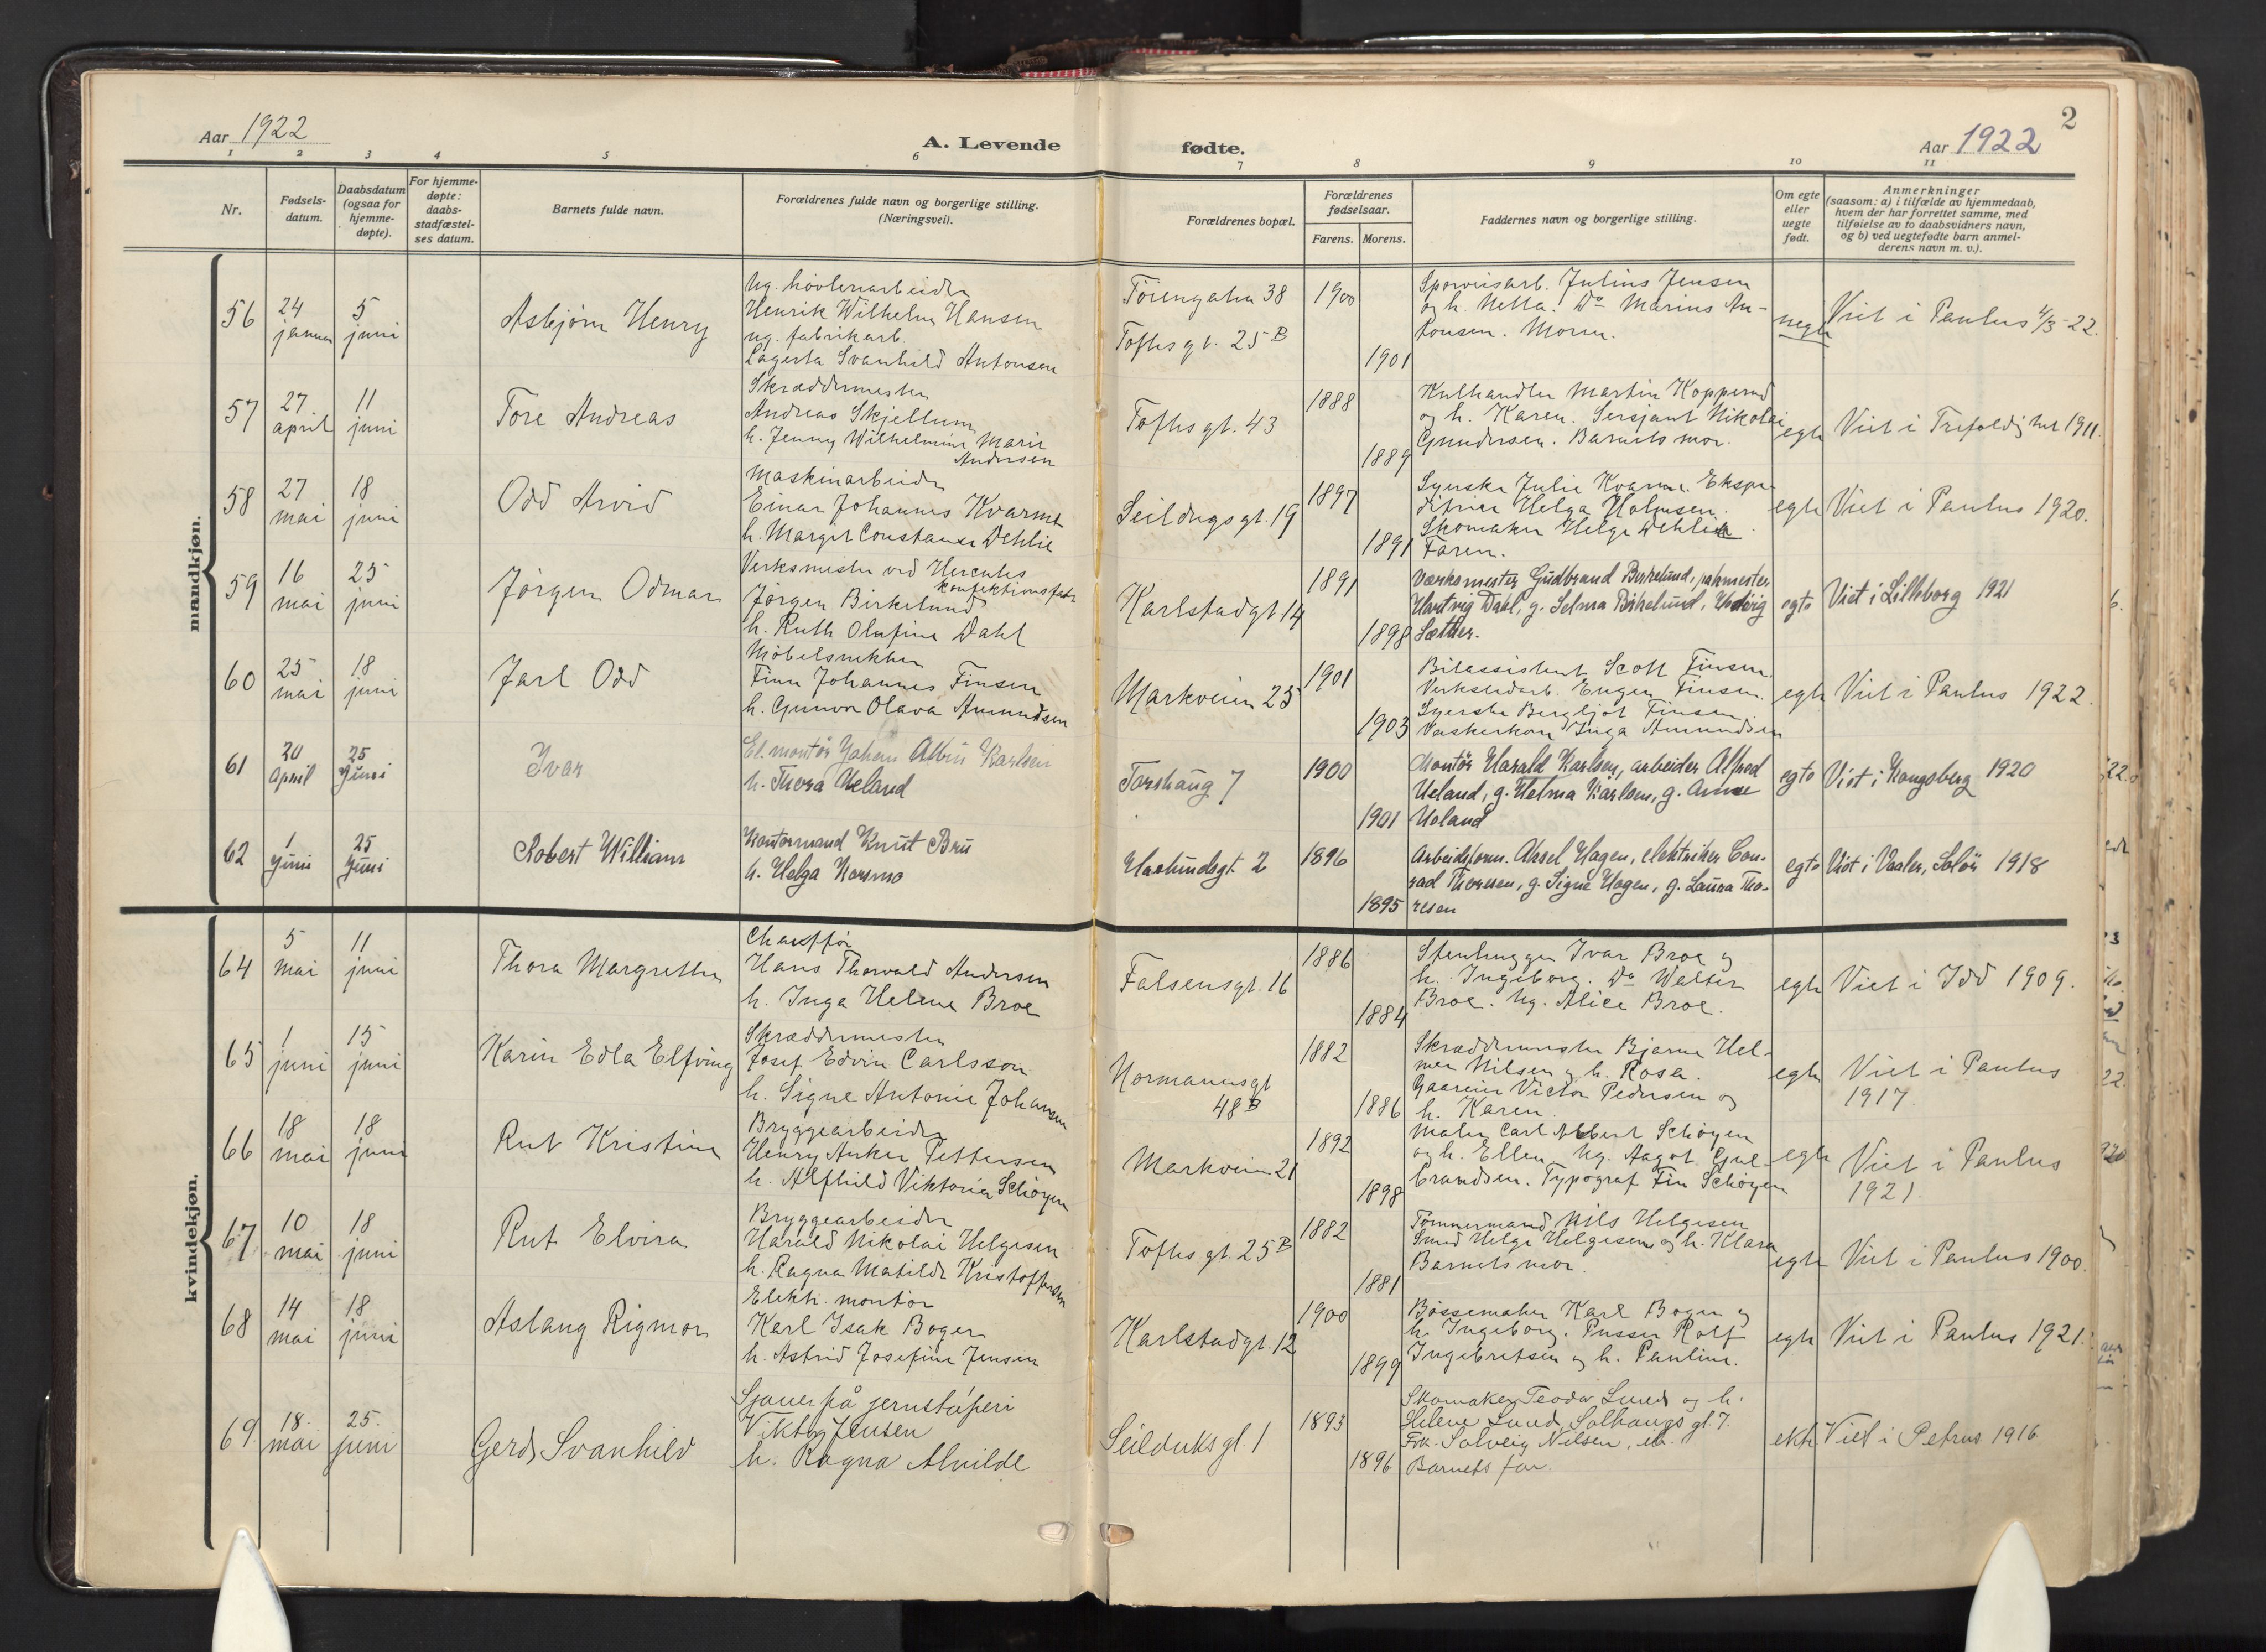 Aar 1922
A. Levende
fødte.
Aar 1922
2
1 2 3 4 5 6 7 8 9 10 11
Nr.
Fødsels-
datum.
Daabsdatum
(ogsaa for
hjemme-
døpte).
For hjemme-
døpte:
daabs-
stadfæstel-
ses datum.
Barnets fulde navn.
Forældrenes fulde navn og borgerlige stilling.
(Næringsvei).
Forældrenes bopæl.
Forældrenes
fødselsaar.
Farens. Morens.
Faddernes navn og borgerlige stilling.
Om egte
eller
uegte
født.
Anmerkninger
(saasom: a) i tilfælde av hjemmedaab,
hvem der har forrettet samme, med
tilføielse av to daabsvidners navn,
og b) ved uegtefødte barn anmel-
derens navn m. v.).
mandkjøn.
56
24
januar
5
juni
Asbjørn Henry
Ug. høvleriarbeider
Henrik Wilhelm Hansen
ug. fabrikarb.
Lagerta Svanhild Antonsen
Töiengaten 38
Toftesgt. 25 B
1900
1901
Sporveisarb. Julius Jensen
og h. Netta. Do Marius An-
tonsen. Moren.
uegte
Viet i Paulus 4/3-22.
57
27
april
11
juni
Tore Andreas
Skræddermester
Andreas Skjellum
h. Jenny Wilhelmine Marie
Andersen
Toftesgt. 43
1888
1889
Kulhandler Martin Kopperud
og h. Karen. Sersjant Nikolai
Gundersen. Barnets mor.
egte
Viet i Trefoldighet 1911.
58
27
mai
18
juni
Odd Arvid
Maskinarbeider
Einar Johannes Kvarme
h. Margit Constanse Dehlie
Seildugsgt. 19
1897
1891
Syerske Julie Kvarme. Ekspe-
ditrise Helga Holmsen.
Skomaker Helge Dehlie.
Faren.
egte
Viet i Paulus 1920.
59
16
mai
25
juni
Jørgen Odmar
Verksmester ved Hercules
konfektionsfabr
Jørgen Birkelund
h. Ruth Olufine Dahl
Karlstadgt 14
1891
1898
Værksmester Gudbrand Birkelund, pakmester
Hartvig Dahl, g. Selma Birkelund, Hedvig
Sæther.
egte
Viet i Lilleborg 1921
60
25
mai
18
juni
Jarl Odd
Møbelsnekker
Finn Johannes Finsen
h. Gunvor Olava Amundsen
Markveien 23
1901
1903
Bilassistent Scott Finsen.
Verkstedarb. Eugen Finsen.
Syerske Bergljot Finsen.
Vaskerkone Inga Amundsen
egte
Viet i Paulus 1922.
61
20
April
25
Juni
Ivar
El. montör Johan Albin Karlsen
h. Thora Ueland
Torshaug 7
1900
1901
Montör Harald Karlsen, arbeider Alfred
Ueland, g. Helma Karlsen, g. Anne
Ueland
egte
Viet i Kongsberg 1920
62
1
Juni
25
Juni
Robert William
Kontormand Knut Bru
h. Helga Korsmo
Haslundsgt. 2
1896
1895
Arbeidsform. Aksel Hagen, elektriker Con-
rad Thoresen, g. Signe Hagen, g. Laura Tho-
resen
egte
Viet i Vaaler, Solör 1918
kvindekjøn.
64
5
mai
11
juni
Thora Margrethe
Chauffør
Hans Thorvald Andersen
h. Inga Helene Broe
Falsensgt. 16
1886
1884
Stenhugger Ivar Broe og
h. Ingeborg. Do Walter
Broe. Ug. Alice Broe.
egte
Viet i Idd 1909.
65
1
juni
15
juni
Karin Edla Elfving
Skræddermester
Josef Edvin Carlsson
h. Signe Antonie Johansen
Normannsgt
48 B
1882
1886
Skræddermester Bjarne Hel-
mer Nilsen og h. Rosa.
Victor Pedersen og
h. Karen.
egte
Viet i Paulus
1917.
66
18
mai
18
juni
Rut Kristine
Bryggearbeider
Henry Anker Pettersen
h. Alfhild Viktoria Schøyen
Markveien 21
1892
1898
Maler Carl Albert Schøyen
og h. Ellen. Ug. Aagot Gul-
brandsen. Typograf Fin Schøyen
egte
Viet i Paulus
1921.
67
10
mai
18
juni
Rut Elvira
Bryggearbeider
Harald Nikolai Helgesen
h. Ragna Matilde Kristoffersen
Toftesgt. 25 B
1882
1881
Tømmermand Nils Helgesen
Smed Helge Helgesen og h. Klara
Barnets mor.
egte
Viet i Paulus 1900.
68
14
mai
18
juni
Aslaug Rigmor
Elektr. montør
Karl Isak Boger
h. Astrid Josefine Jensen
Karlstadgt. 12
1900
1899
Bøssemaker Karl Boger og
h. Ingeborg. Pusser Rolf
Ingebretsen og h. Pauline.
egte
Viet i Paulus 1921.
69.
18.
mai
25.
juni
Gerd Svanhild
Sjauer på jernstøperi
Viktor Jensen
h. Ragna Alvilde
Seilduksgt. 1
1893
1896
Skomaker Teodor Lund og h.
Helene Lund, Solhaugsgt. 7.
Frk. Solveig Nilsen, ib.
Barnets far.
ekte
Viet i Petrus 1916